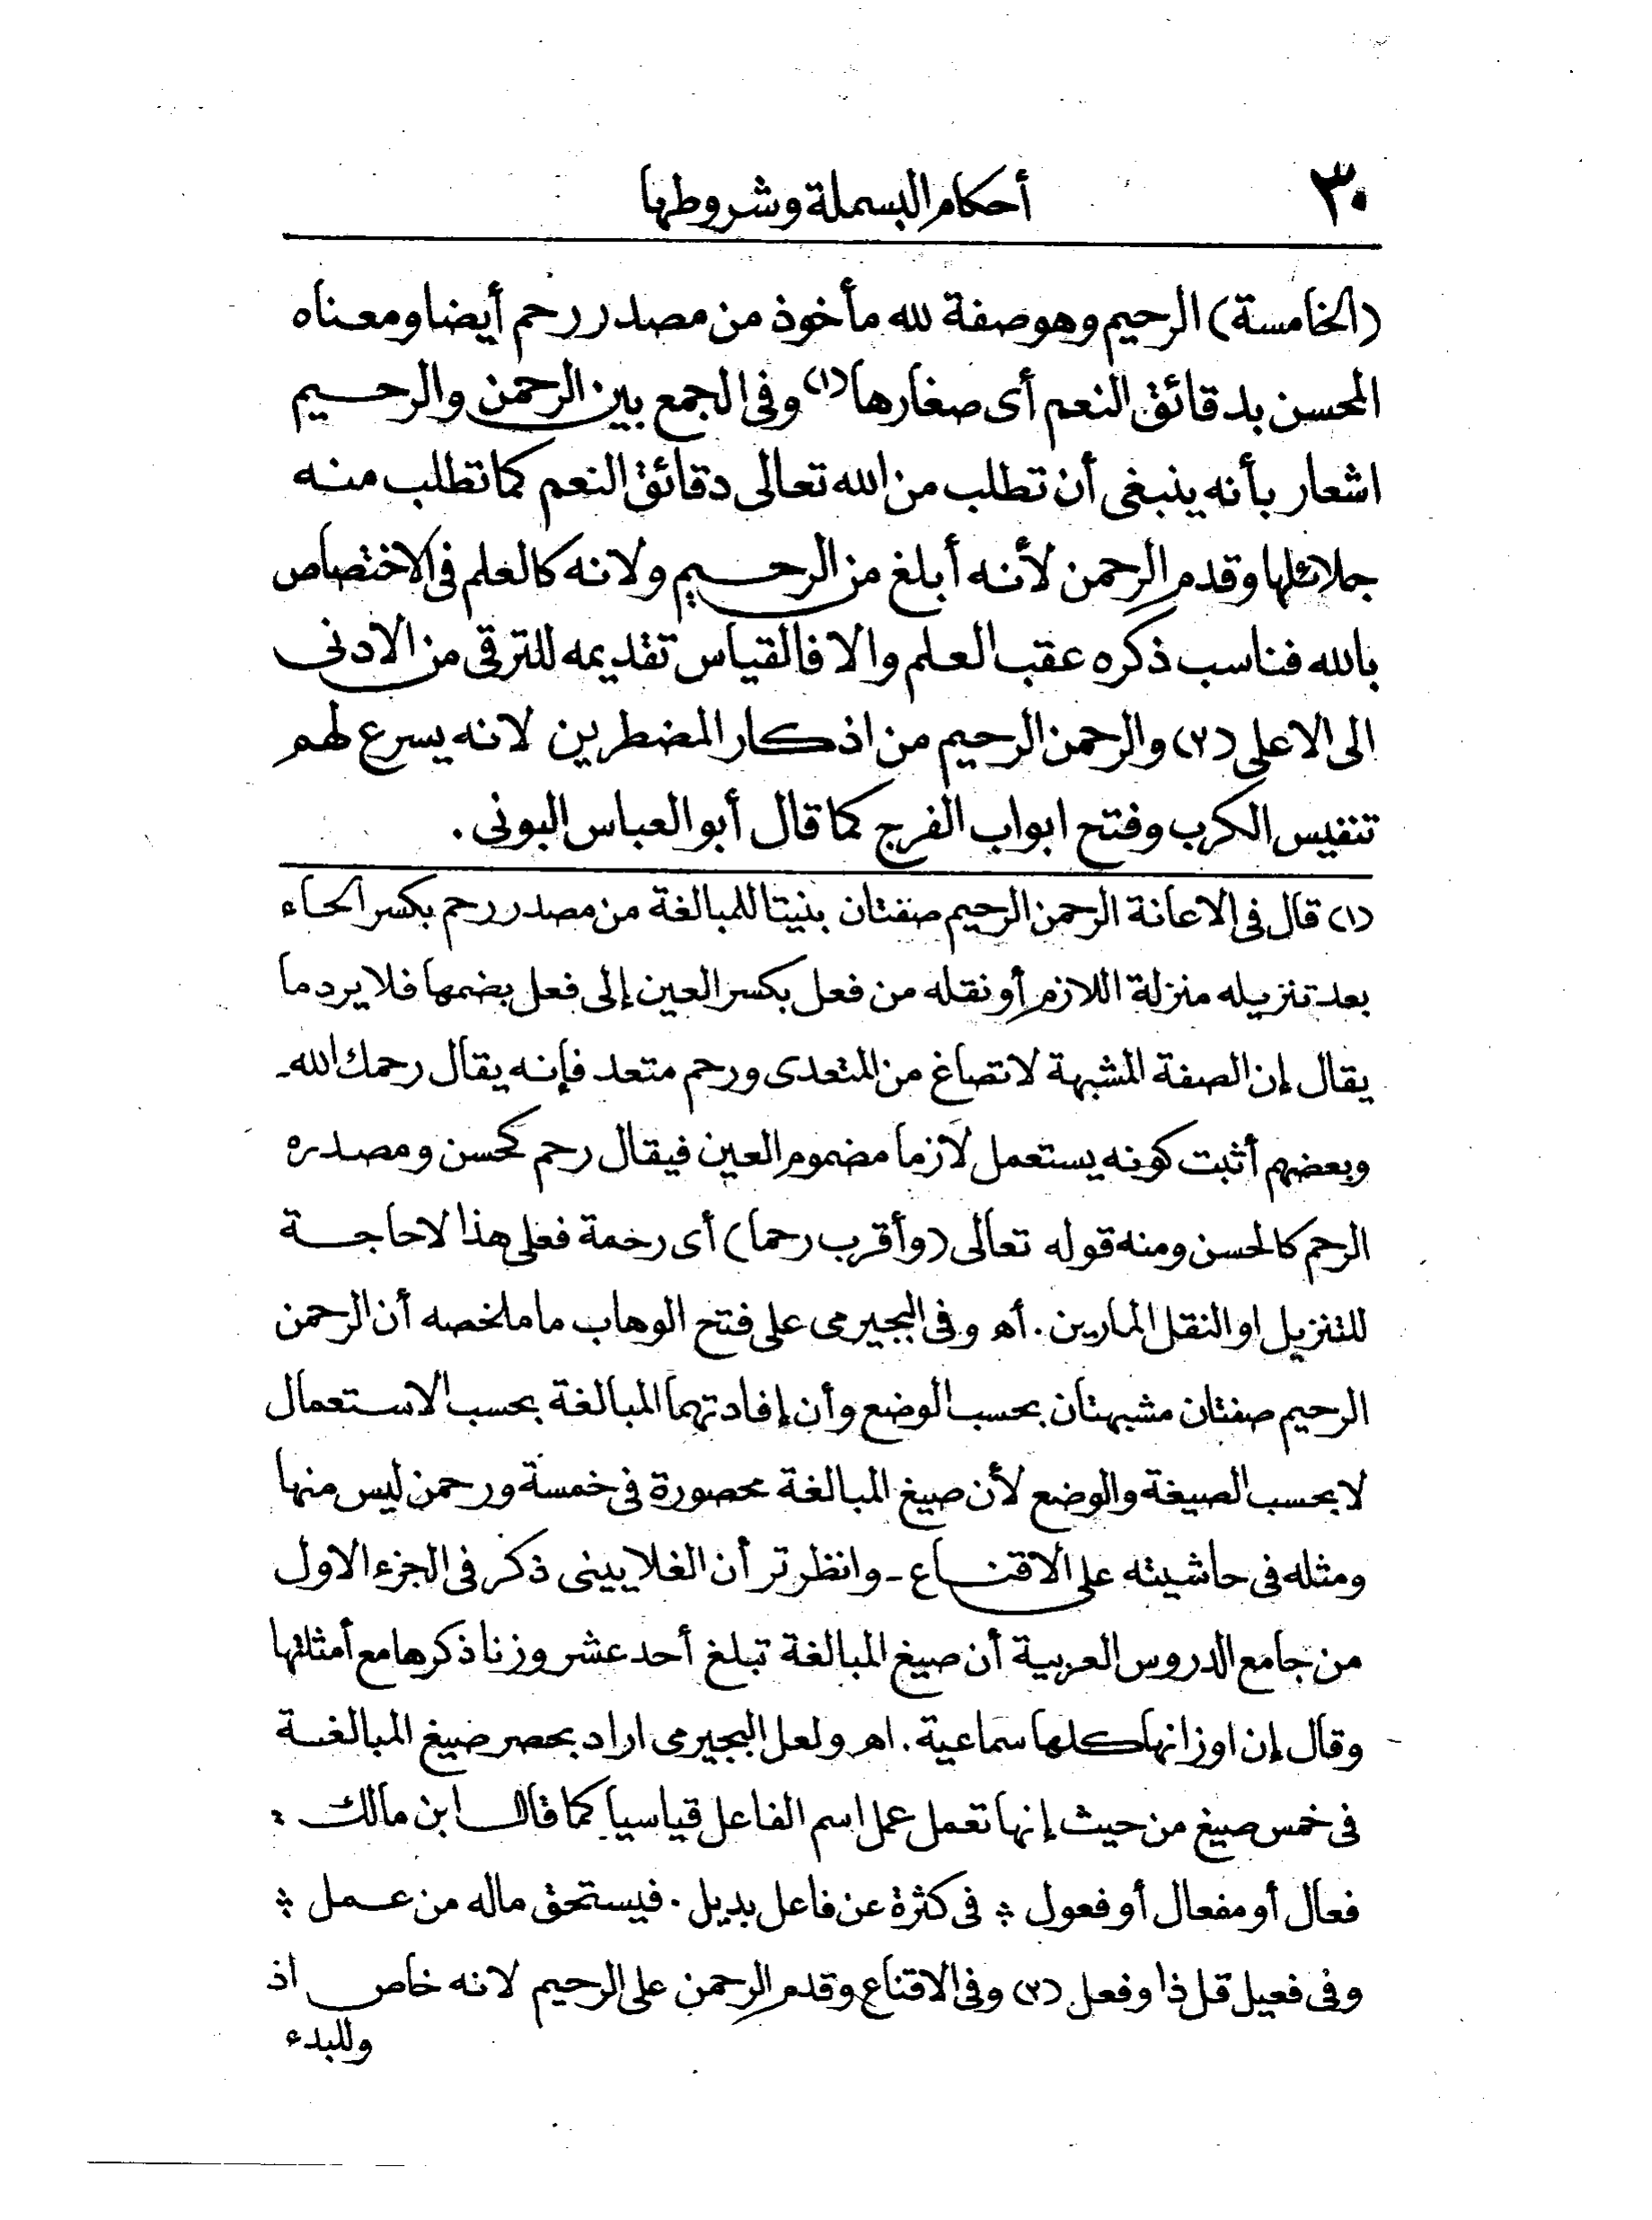 ٣٠
أحكام البسملة وشروطها
(الخامسة) الرحيم وهو صفة لله مأخوذ من مصدر رحم أيضا ومعناه
المحسن بدقائق النعم أى صغارها (١) وفى الجمع بين الرحمن والرحيم
اشعار بأنه ينبغى أن تطلب من الله تعالى دقائق النعم كما تطلب منه
جلائلها وقدم الرحمن لأنه أبلغ من الرحيم ولانه كالعلم فى الاختصاص
بالله فناسب ذكره عقب العلم والا فالقياس تقديمه للترقى من الادنى
الى الاعلى (٢) والرحمن الرحيم من اذكار المضطرين لانه يسرع لهم
تنفيس الكرب وفتح ابواب الفرج كما قال أبو العباس البونى .
(١) قال فى الاعانة الرحمن الرحيم صفتان بنيتا للمبالغة من مصدر رحم بكسر الحاء
بعد تنزيله منزلة اللازم أو نقله من فعل بكسر العين إلى فعل بضمها فلا يرد ما
يقال إن الصفة المشبهة لا تصاغ من المتعدى ورحم متعد فإنه يقال رحمك الله-
وبعضهم أثبت كونه يستعمل لازما مضموم العين فيقال رحم كحسن ومصدره
الرحم كالحسن ومنه قوله تعالى (وأقرب رحما) أى رحمة فعلى هذا لا حاجة
للتنزيل او النقل المارين . أه وفى البجيرمى على فتح الوهاب ما ملخصه أن الرحمن
الرحيم صفتان مشبهتان بحسب الوضع وأن إفادتهما المبالغة بحسب الاستعمال
لا بحسب الصيغة والوضع لأن صيغ المبالغة محصورة فى خمسة ورحمن ليس منها
ومثله فى حاشيته على الاقناع - وانظر تر أن الغلايينى ذكر فى الجزء الاول
من جامع الدروس العربية أن صيغ المبالغة تبلغ أحد عشر وزنا ذكرها مع أمثلتها
وقال إن اوزانها كلها سماعية . اه ولعل البجيرمى اراد بحصر صيغ المبالغة
فى خمس صيغ من حيث إنها تعمل عمل اسم الفاعل قياسيا كما قال ابن مالك :
فعال أو مفعال أو فعول ؞ فى كثرة عن فاعل بديل . فيستحق ماله من عمل ؞
وفى فعيل قل ذا وفعل (٢) وفى الاقناع وقدم الرحمن على الرحيم لانه خاص اذ
وللبدء